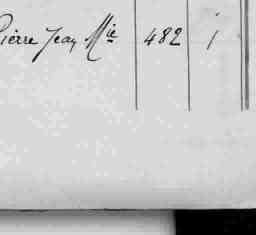 Pierre Jean Mie 482 1